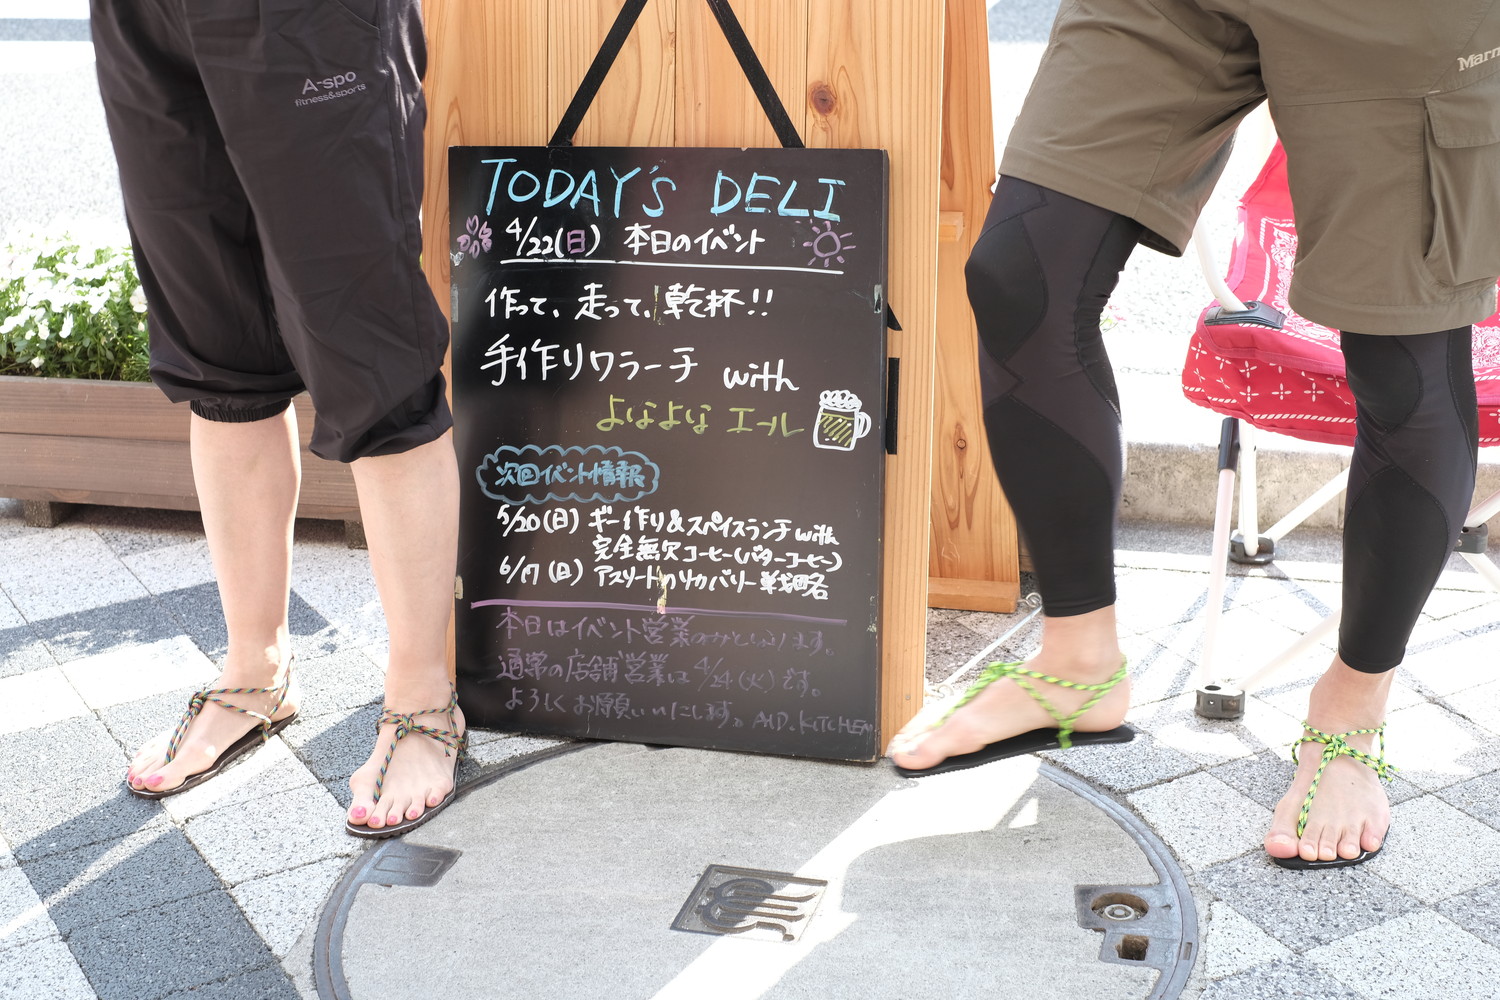 A-spo
fitness&sports
Marm
TODAY'S DELI
4/22(日) 本日のイベント
作って、走って、乾杯!!
手作りワラーチ with
よなよなエール
次回イベント情報
5/20(日) ギー作り&スパイスランチ with
完全無欠コーヒー(バターコーヒー)
6/17(日) アスリートのリカバリー戦略
本日はイベント営業のみとなります。
通常の店舗営業は4/24(火)です。
よろしくお願いいたします。 AND.KITCHEN